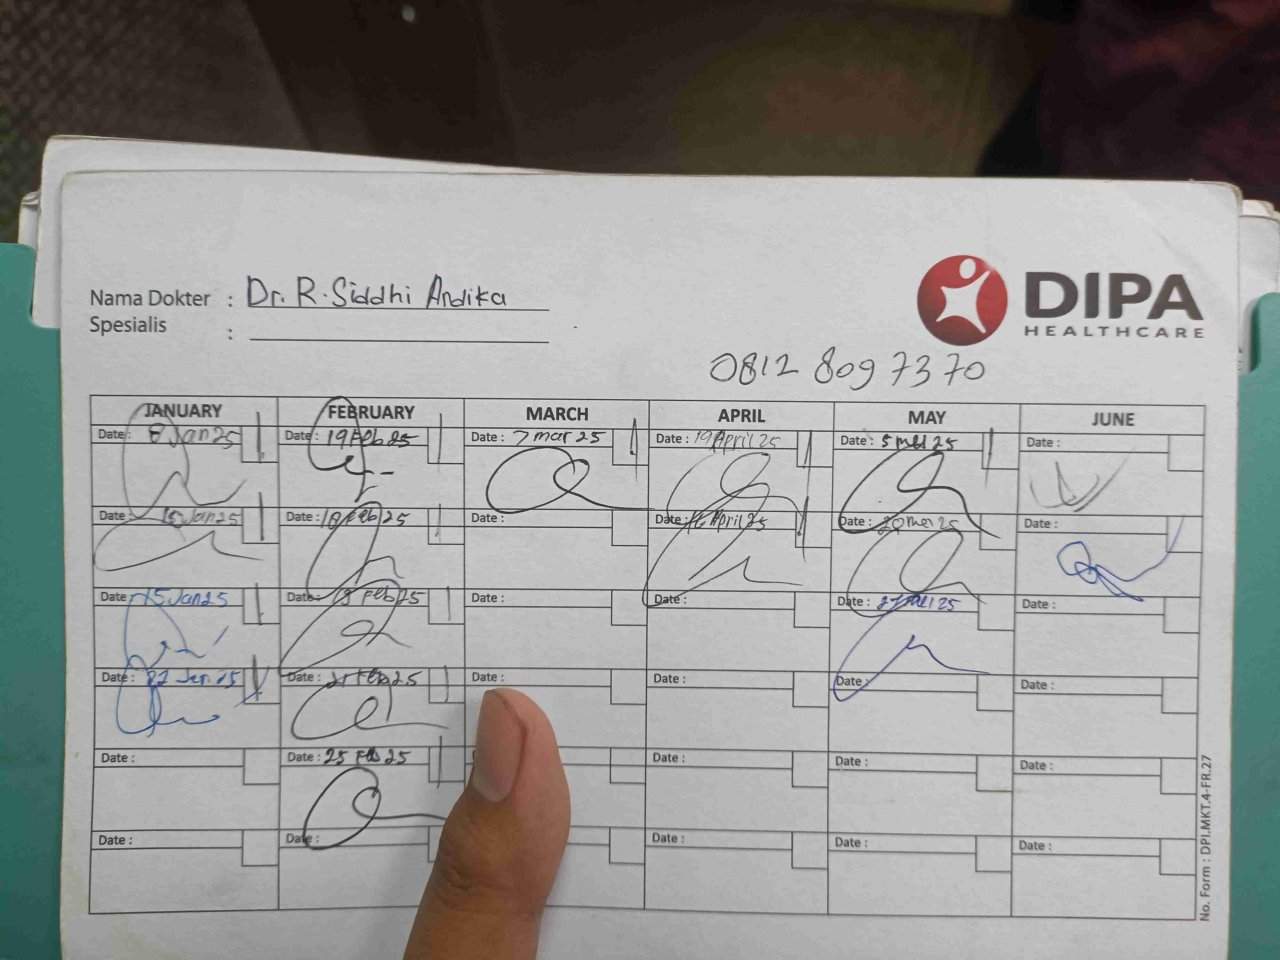 Nama Dokter : Dr. R. Siddhi Andika
Spesialis :
DIPA
HEALTHCARE
0812 809 7370
JANUARY FEBRUARY MARCH APRIL MAY JUNE
Date: 8 Jan 25 Date : 19 Feb 25 Date : 7 mar 25 Date : 19 April 25 Date : 5 mei 25 Date :
Date : 15 Jan 25 Date : 18 Feb 25 Date : Date : April 25 Date : 20 mei 25 Date :
Date : 15 Jan 25 Date : Feb 25 Date : Date : Date : 27 Mei 25 Date :
Date : 22 Jan 25 Date : 21 Feb 25 Date : Date : Date : Date :
Date : Date : 25 Feb 25 Date : Date : Date :
Date : Date : Date : Date : Date :
No. Form : DPI.MKT.4-FR.27